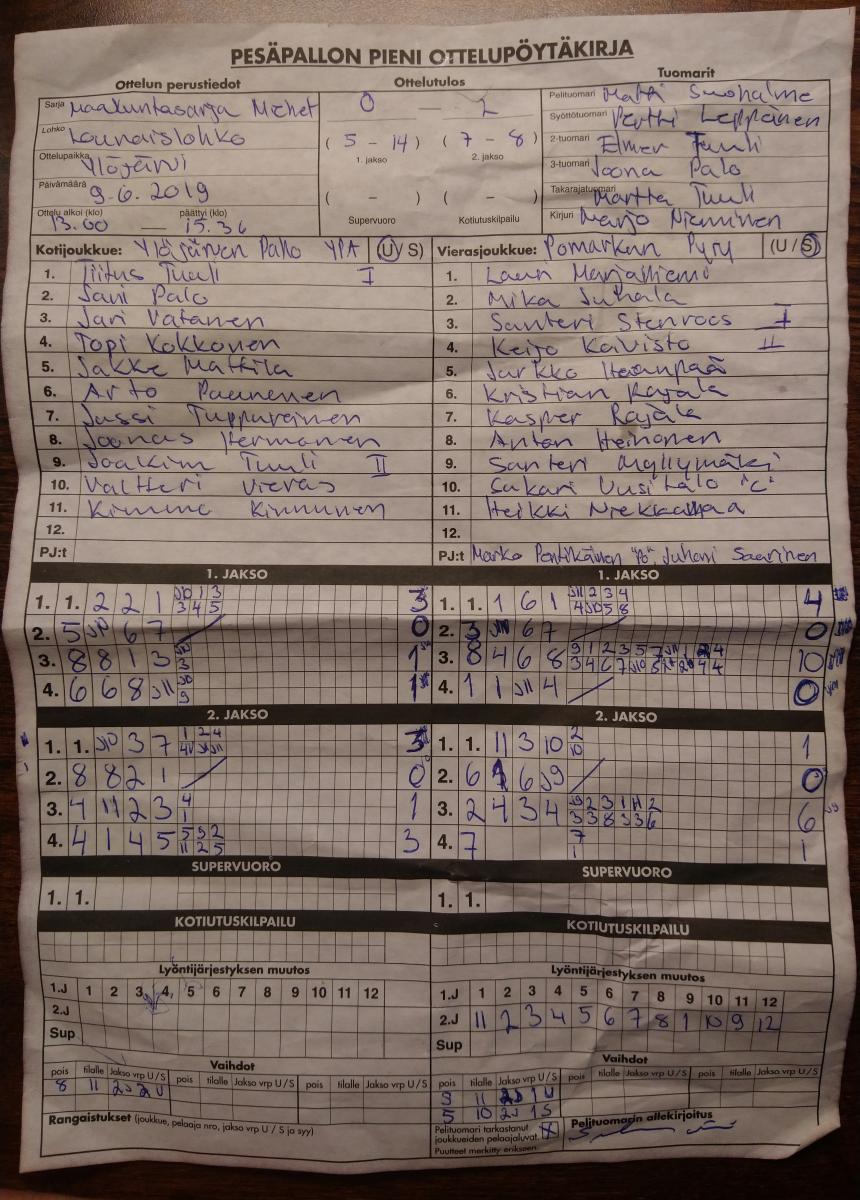 PESÄPALLON PIENI OTTELUPÖYTÄKIRJA
Ottelun perustiedot
Ottelutulos
Tuomarit
Sarja Maakuntasarja Miehet
Lohko Lounaislohko
Ottelupaikka Ylöjärvi
Päivämäärä 9.6.2019
Ottelu alkoi (klo) päättyi (klo)
13.00 — 15.36
0 - 2
(5 - 14) (7 - 8)
1. jakso 2. jakso
( - ) ( - )
Supervuoro Kotiutuskilpailu
Pelituomari Matti Suoholme
Syöttötuomari Pertti Leppänen
2-tuomari Elmer Tuuli
3-tuomari Joona Palo
Takarajatuomari Martta Tuuli
Kirjuri Marjo Nieminen
Kotijoukkue: Ylöjärven Pallo YPA (U/S)
1. Tiitus Tuuli I
2. Jani Palo
3. Jari Vatanen
4. Topi Kokkonen
5. Jakke Mattila
6. Arto Paunenen
7. Jussi Tuppurainen
8. Joonas Hermonen
9. Joakim Tuuli II
10. Valtteri Vieras
11. Kimmo Kinnunen
12.
PJ:t
Vierasjoukkue: Pomarkun Pyry (U/S)
1. Lauri Marjaniemi
2. Mika Juhala
3. Santeri Stenroos I
4. Keijo Koivisto II
5. Jarkko Haanpää
6. Kristian Rajala
7. Kasper Rajala
8. Anton Heinonen
9. Santeri Myllymäki
10. Sakari Uusitalo "C"
11. Heikki Niekkamaa
12.
PJ:t Marko Pentikäinen "PJ", Juhani Saarinen
1. JAKSO
1. 1. 2 2 1 3
2. 5 JP 6 7 0
3. 8 8 1 3 1
4. 6 6 8 J11 1
2. JAKSO
1. 1. JP 3 7 3
2. 8 8 2 1 0
3. 4 11 2 3 4 1 1
4. 4 1 4 5 3
SUPERVUORO
1. 1.
KOTIUTUSKILPAILU
1. JAKSO
1. 1. 1 6 1 4
2. 3 J11 6 7 0
3. 8 4 6 8 10
4. 1 1 J11 4 0
2. JAKSO
1. 1. 11 3 10 2 10 1
2. 6 1 6 J9 0
3. 2 4 3 4 6
4. 7 7 1 1
SUPERVUORO
1. 1.
KOTIUTUSKILPAILU
Lyöntijärjestyksen muutos
1.J 1 2 3 4 5 6 7 8 9 10 11 12
2.J
Sup
Vaihdot
pois tilalle Jakso vrp U/S pois tilalle Jakso vrp U/S pois tilalle Jakso vrp U/S
8 11 2J 2U
Rangaistukset (joukkue, pelaaja nro, jakso vrp U / S ja syy)
Lyöntijärjestyksen muutos
1.J 1 2 3 4 5 6 7 8 9 10 11 12
2.J 11 2 3 4 5 6 7 8 1 10 9 12
Sup
Vaihdot
pois tilalle Jakso vrp U/S pois tilalle Jakso vrp U/S pois tilalle Jakso vrp U/S
9 11 2J 1U
5 10 2J 1S
Pelituomari tarkastanut
joukkueiden pelaajaluvat. X
Puutteet merkitty erikseen.
Pelituomarin allekirjoitus